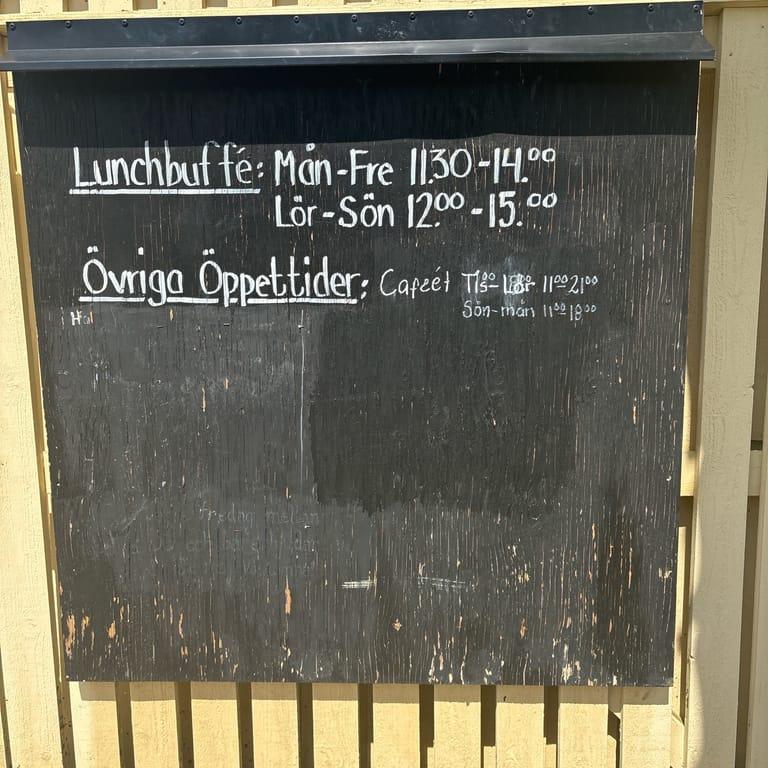 Lunchbuffé: Mån-Fre 11.30-14.00
Lör-Sön 12.00-15.00
Övriga Öppettider: Cafeét Tis-Lör 11.00-21.00
Sön-mån 11.00-18.00
fredag mellan